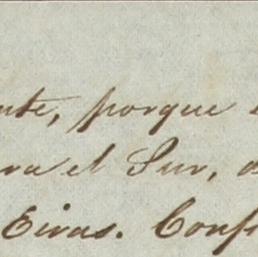 nte, porque
ra el Sur,
Eiras. Conf